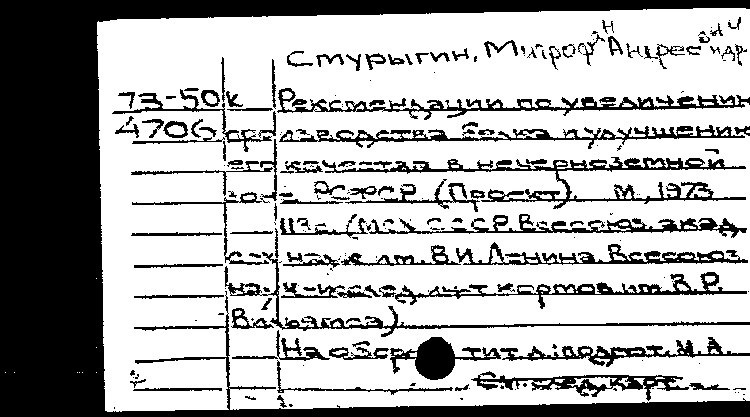 Смурыгин, Митрофан Андреевич
73-50к Рекомендации по увеличению
4706 производства белка и улучшению
его качества в нечерноземной
зоне РСФСР (Проект). М., 1973
113с. (МСХ СССР. Всесоюз. акад.
с-х наук им. В.И. Ленина. Всесоюз.
науч-исслед. ин-т кормов им. В.Р.
Вильямса).
На обор. тит. л.: подгот. М. А.
См. след. карт.